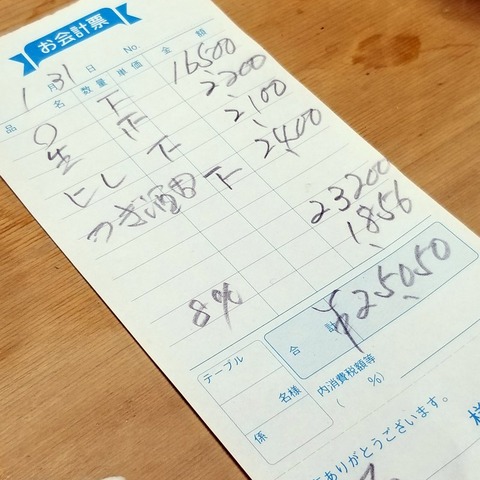 お会計票
1月31日 No.
品名 数量 単価 金額
〇 下 16500
生 正 2,200
にし 下 2,100
つぎ酒由 下 2,400
23200
1,856
8%
合計 ¥25050
テーブル
名様
係
内消費税額等
( %)
ありがとうございます。
様